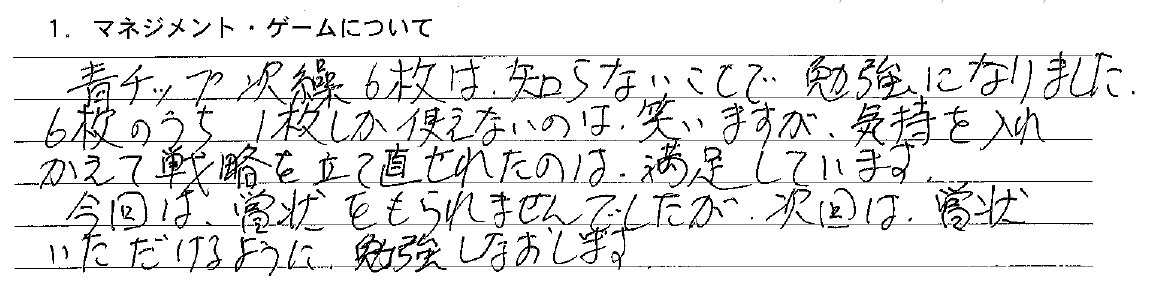 1. マネジメント・ゲームについて
青チップ次繰6枚は、知らないことで勉強になりました。
6枚のうち1枚しか使えないのは、笑いますが、気持を入れ
かえて戦略を立て直せれたのは、満足しています。
今回は、賞状をもられませんでしたが、次回は、賞状
いただけるように、勉強しなおします。